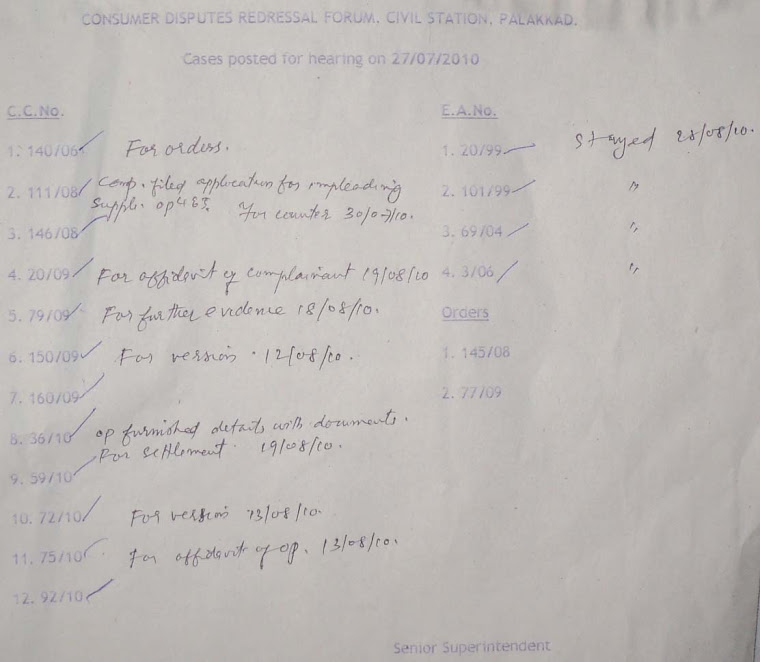 CONSUMER DISPUTES REDRESSAL FORUM, CIVIL STATION, PALAKKAD.
Cases posted for hearing on 27/07/2010
C.C.No.
1. 140/06 For orders.
2. 111/08 Comp. filed application for impleading
suppli. op4 & 5. For counter 30/07/10.
3. 146/08
4. 20/09 For affidavit of complainant 19/08/10
5. 79/09 For further evidence 18/08/10.
6. 150/09 For version. 12/08/10.
7. 160/09
8. 36/10 op furnished details with documents.
For settlement. 19/08/10.
9. 59/10
10. 72/10 For version 13/08/10.
11. 75/10 For affidavit of op. 13/08/10.
12. 92/10
E.A.No.
1. 20/99 Stayed 28/08/10.
2. 101/99 "
3. 69/04 "
4. 3/06 "
Orders
1. 145/08
2. 77/09
Senior Superintendent